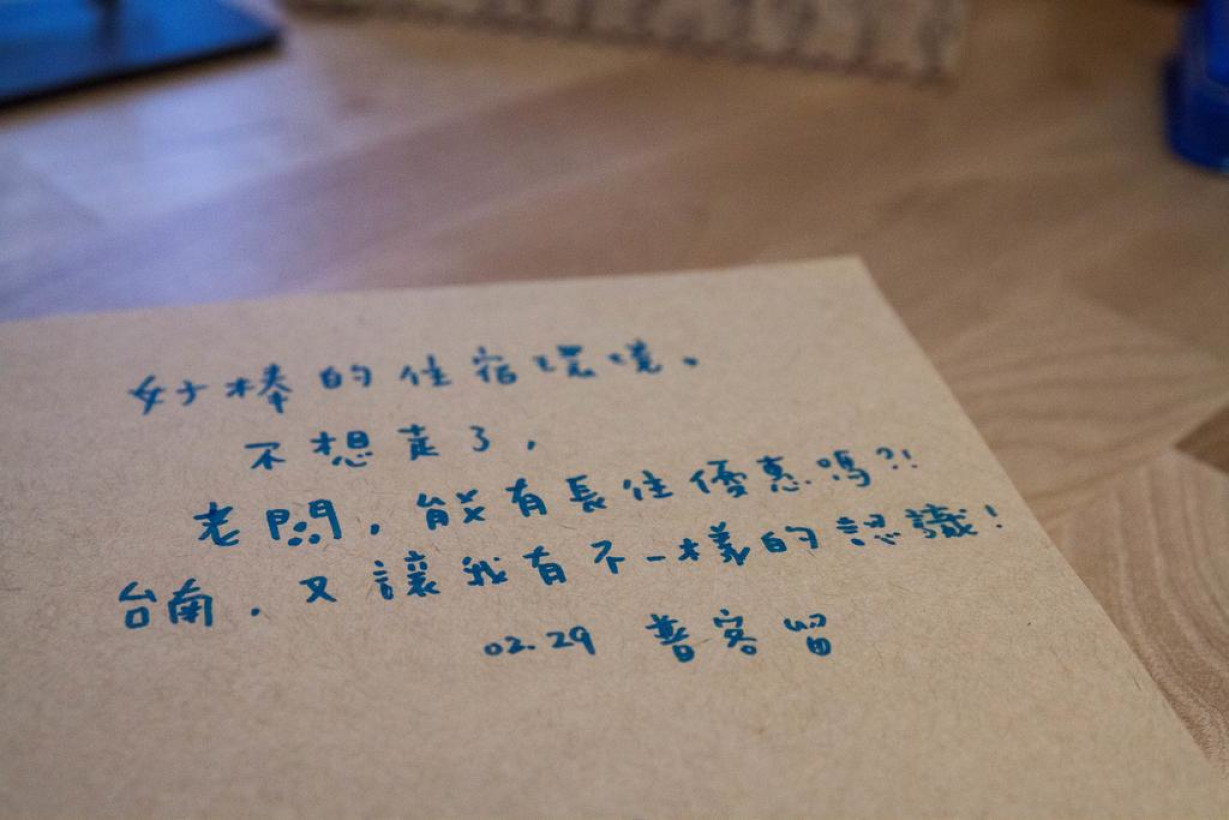 好棒的住宿環境。
不想走了,
老闆,能有長住優惠嗎?!
台南.又讓我有不一樣的認識!
02.29 普客留